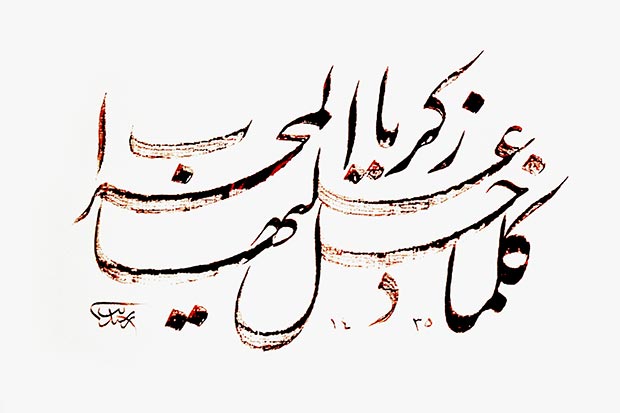 كلما دخل عليها زكريا المحراب
١٤٣٥